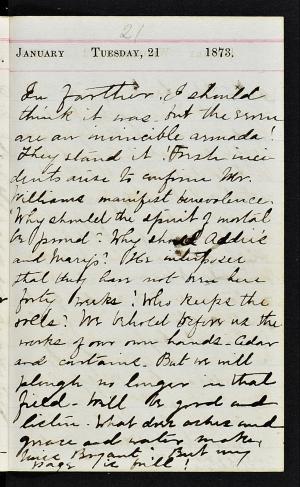 21
JANUARY TUESDAY, 21 1873.
In farther. I should
think it was. but the seven
are an invincible armada!
They stand it! Fresh inci-
dents arise to confirm Mr.
Williams manifest benevolence.
"Why should the spirit of mortal
be proud?" Why should Addie's
and Mary's? He interposes
that they have not been here
forty weeks! Who keeps the
rolls? We behold before us the
works of our own hands. Cedar
and curtains. But we will
plough no longer in that
field. Will be good and
listen. What does ashes and
grease and water make,
Miss Bryant? But my
page is full!